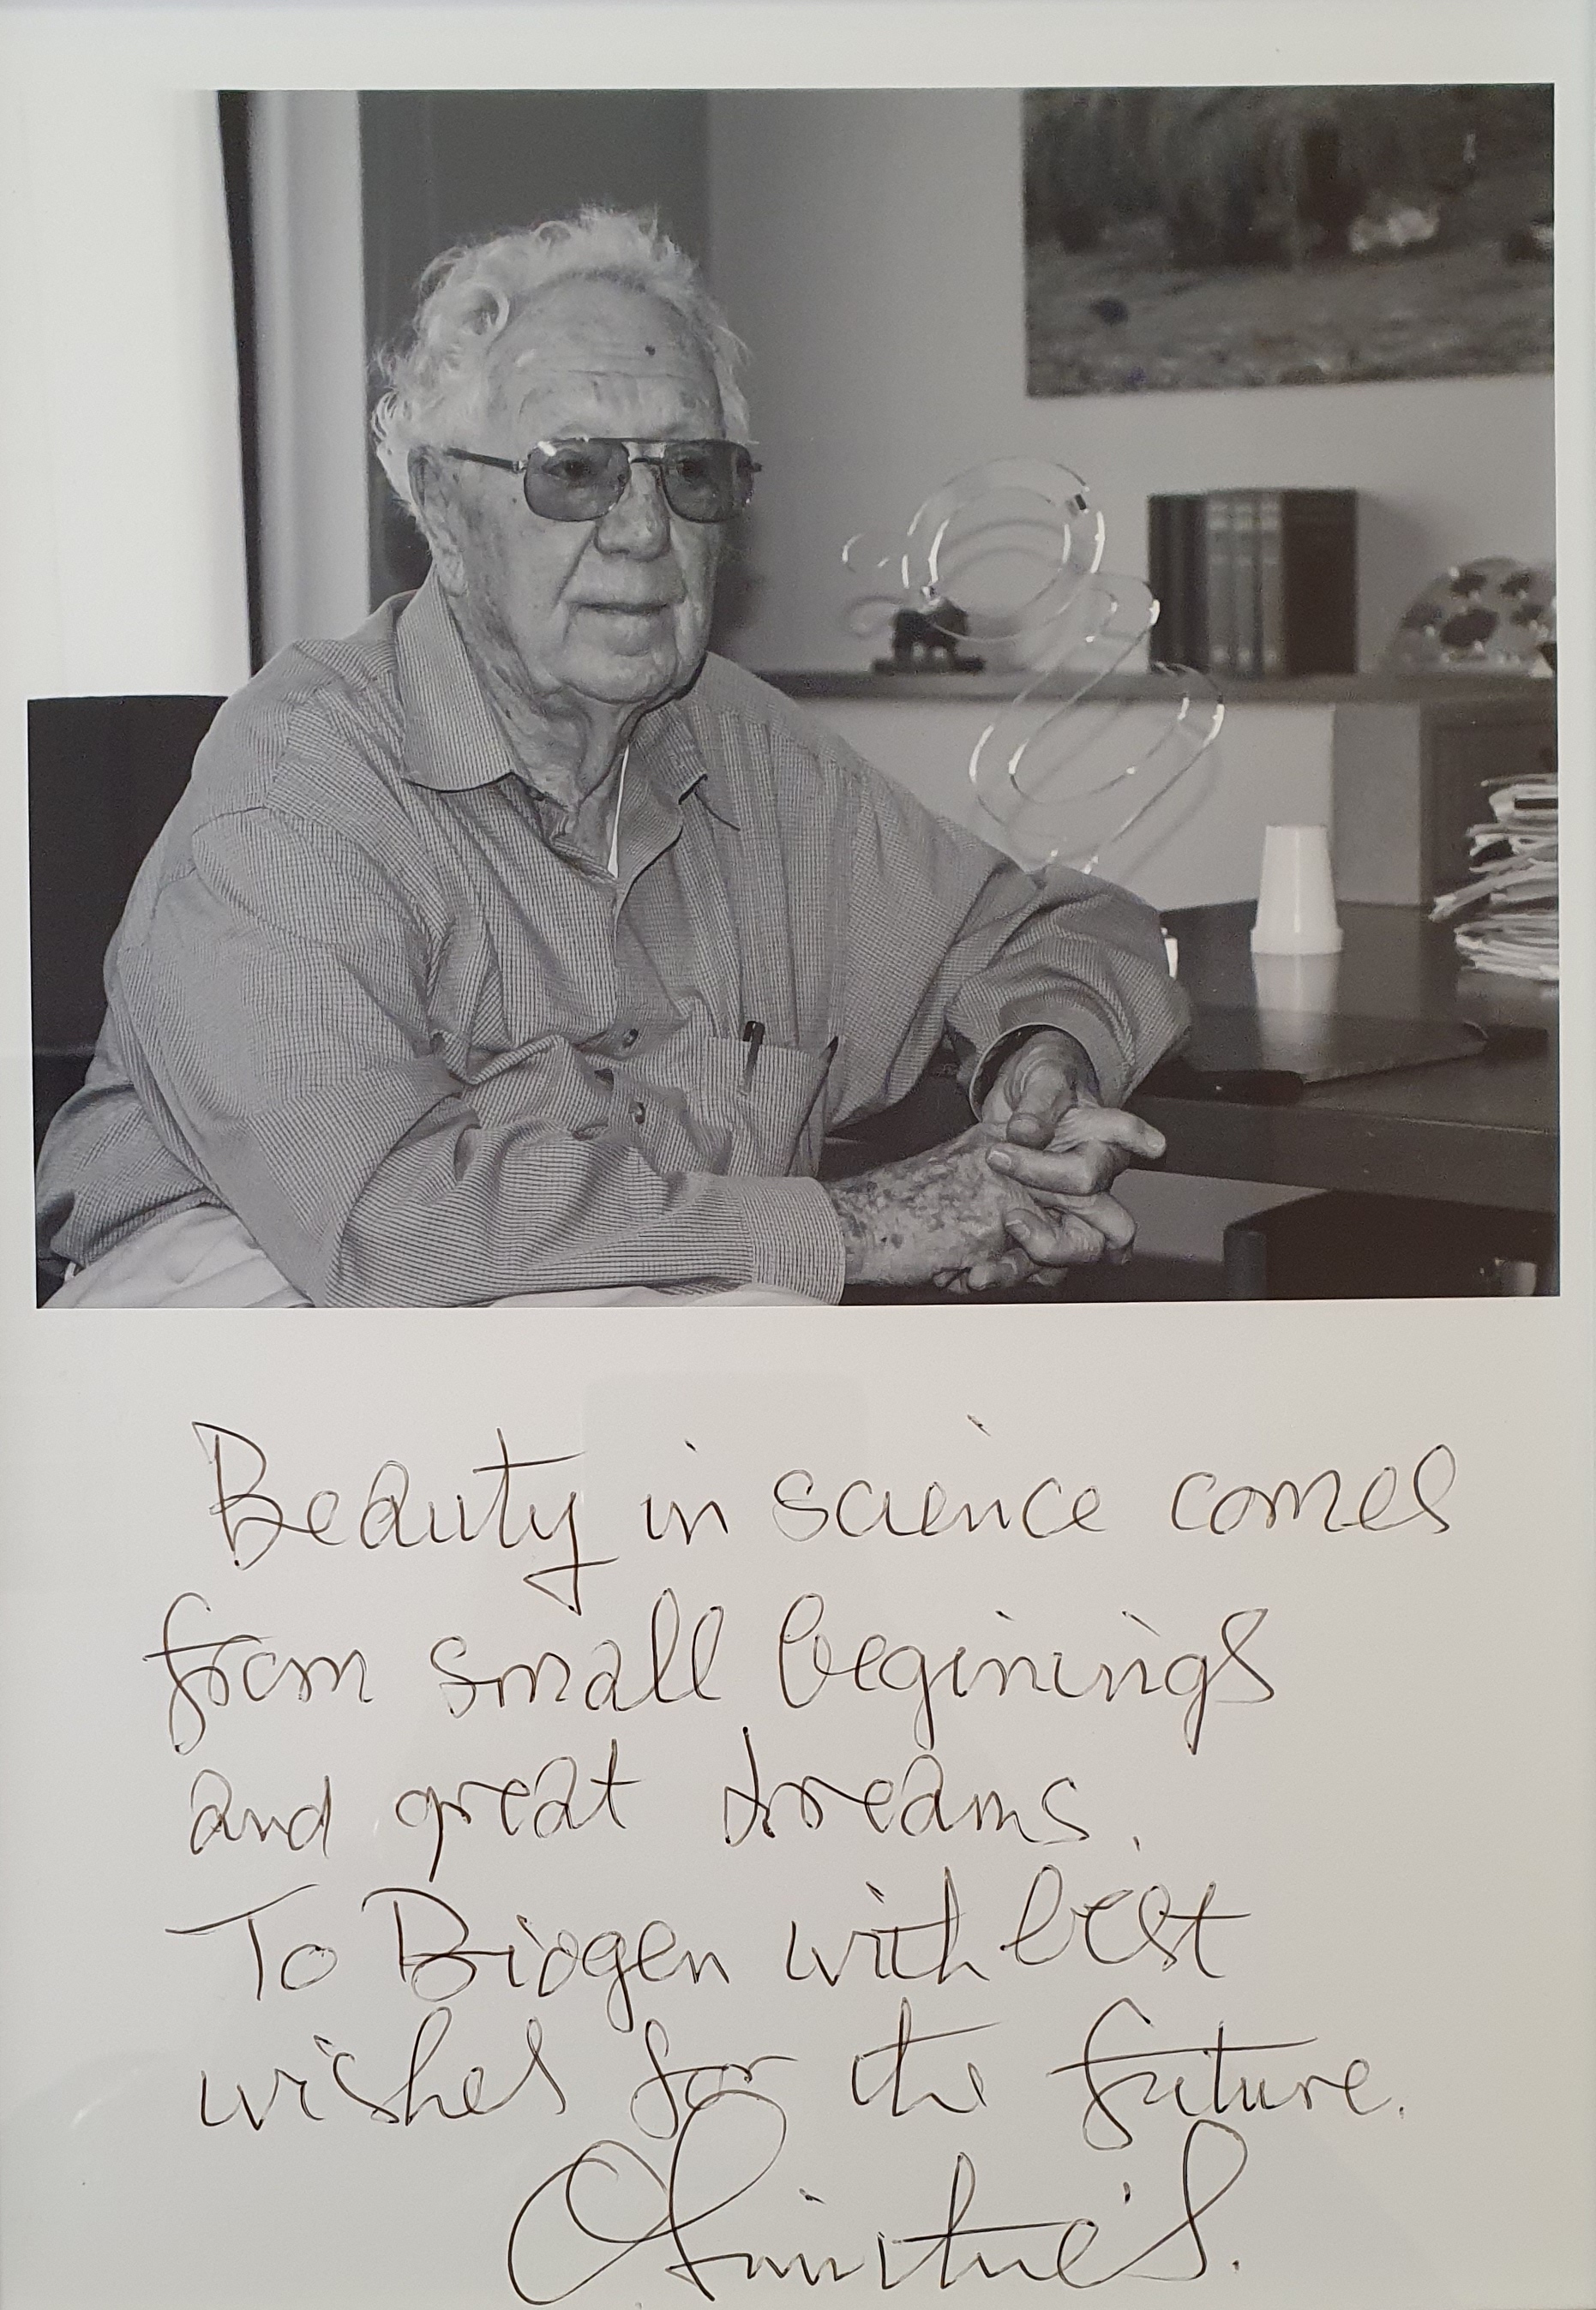 Beauty in science comes
from small beginings
and great dreams.
To Biogen with best
wishes for the future.